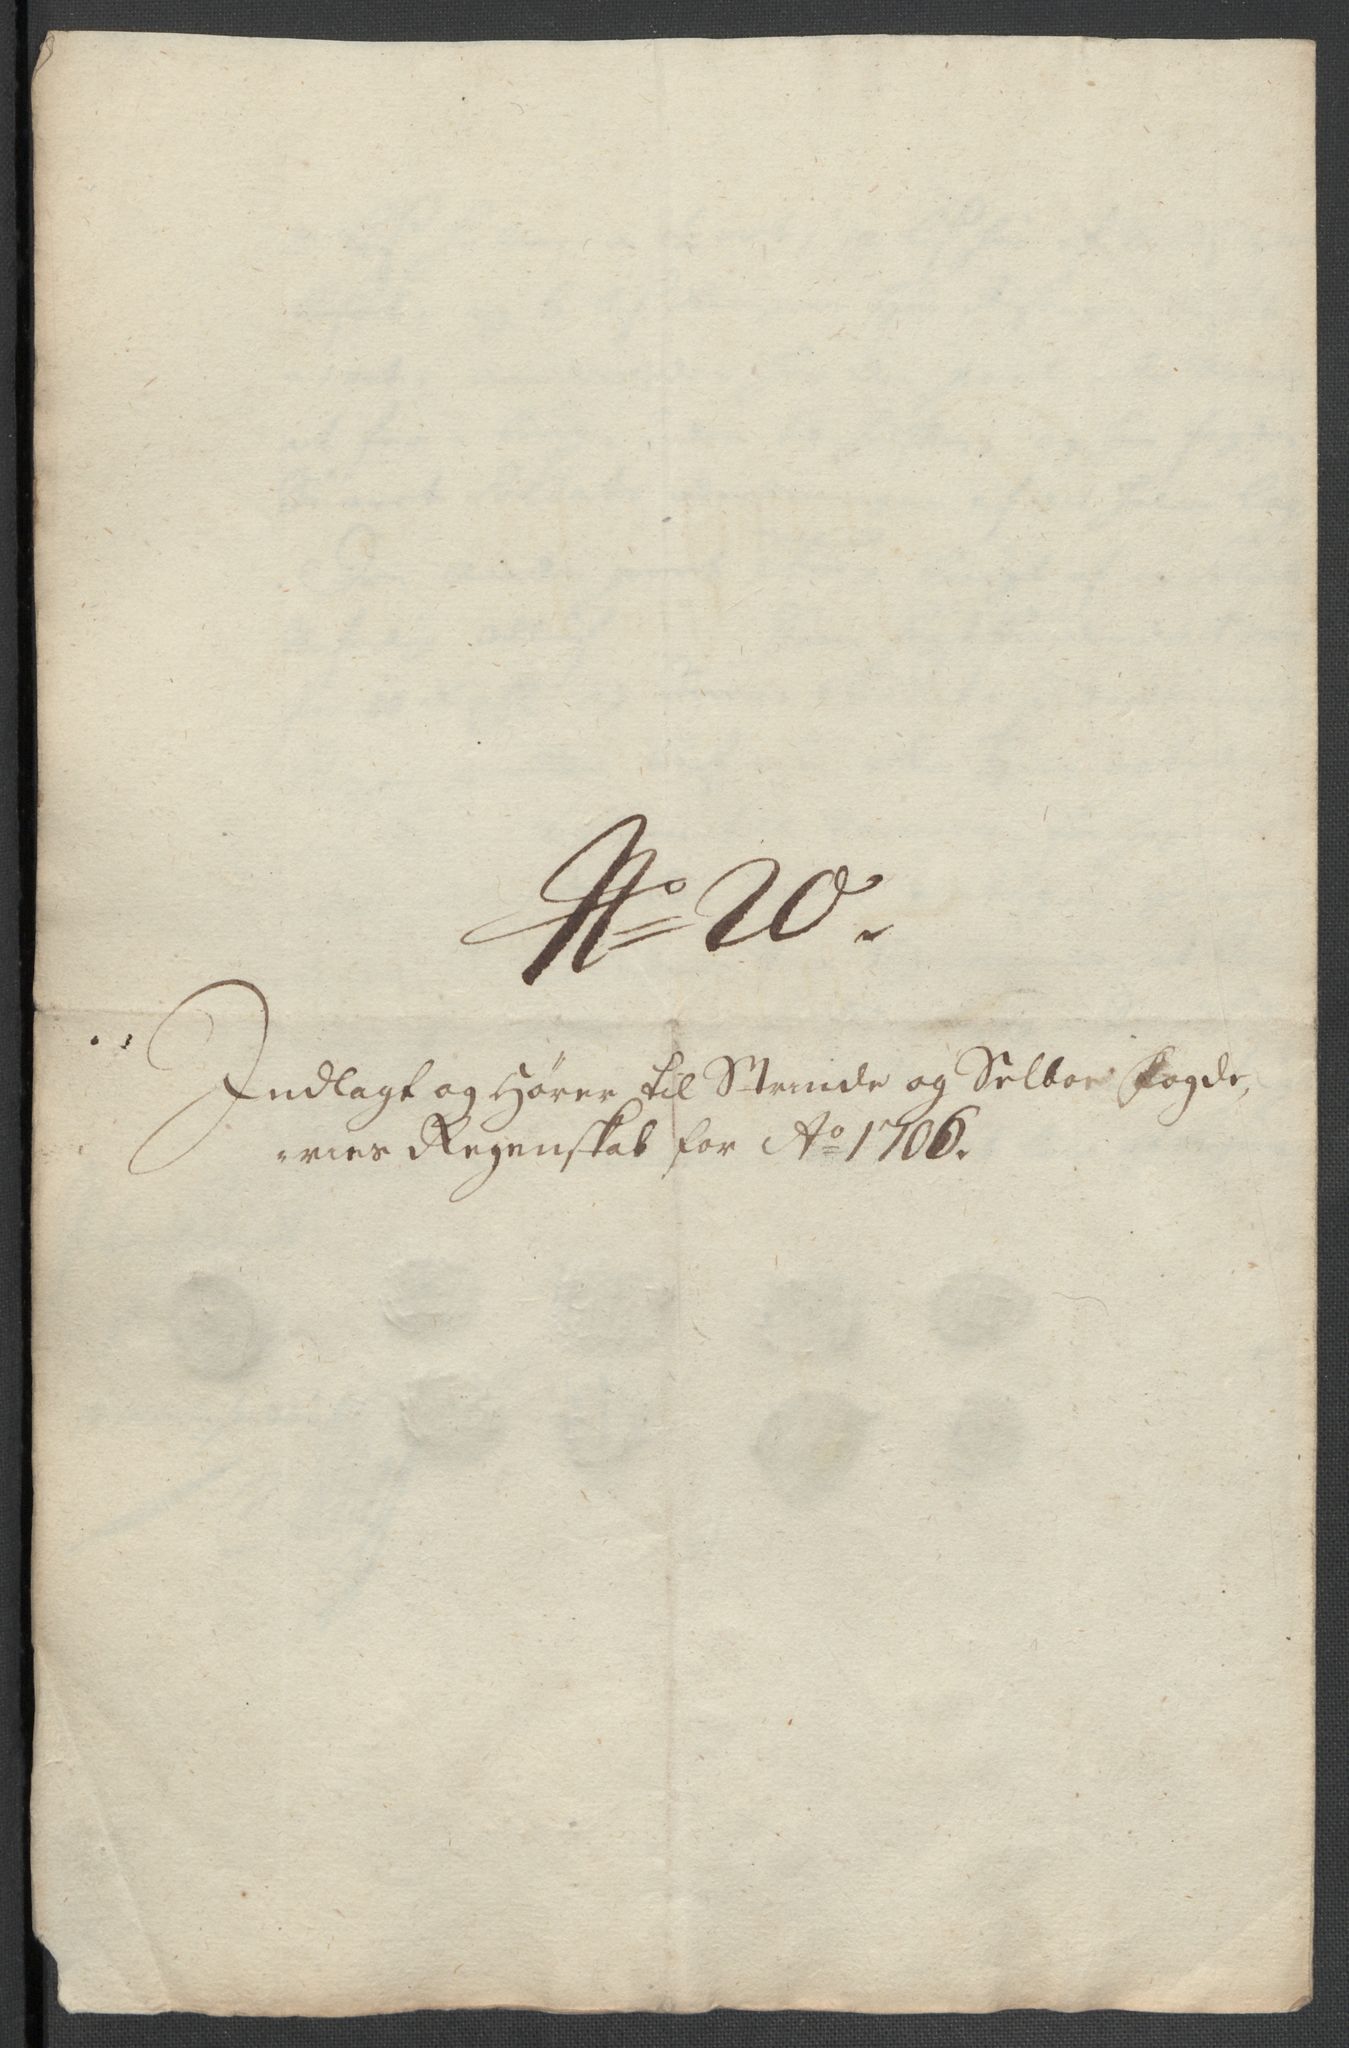 No 20.
Indlagt og Hører til Strinde og Selboe fogde,
,,ries Regenskab for Ao 1706.